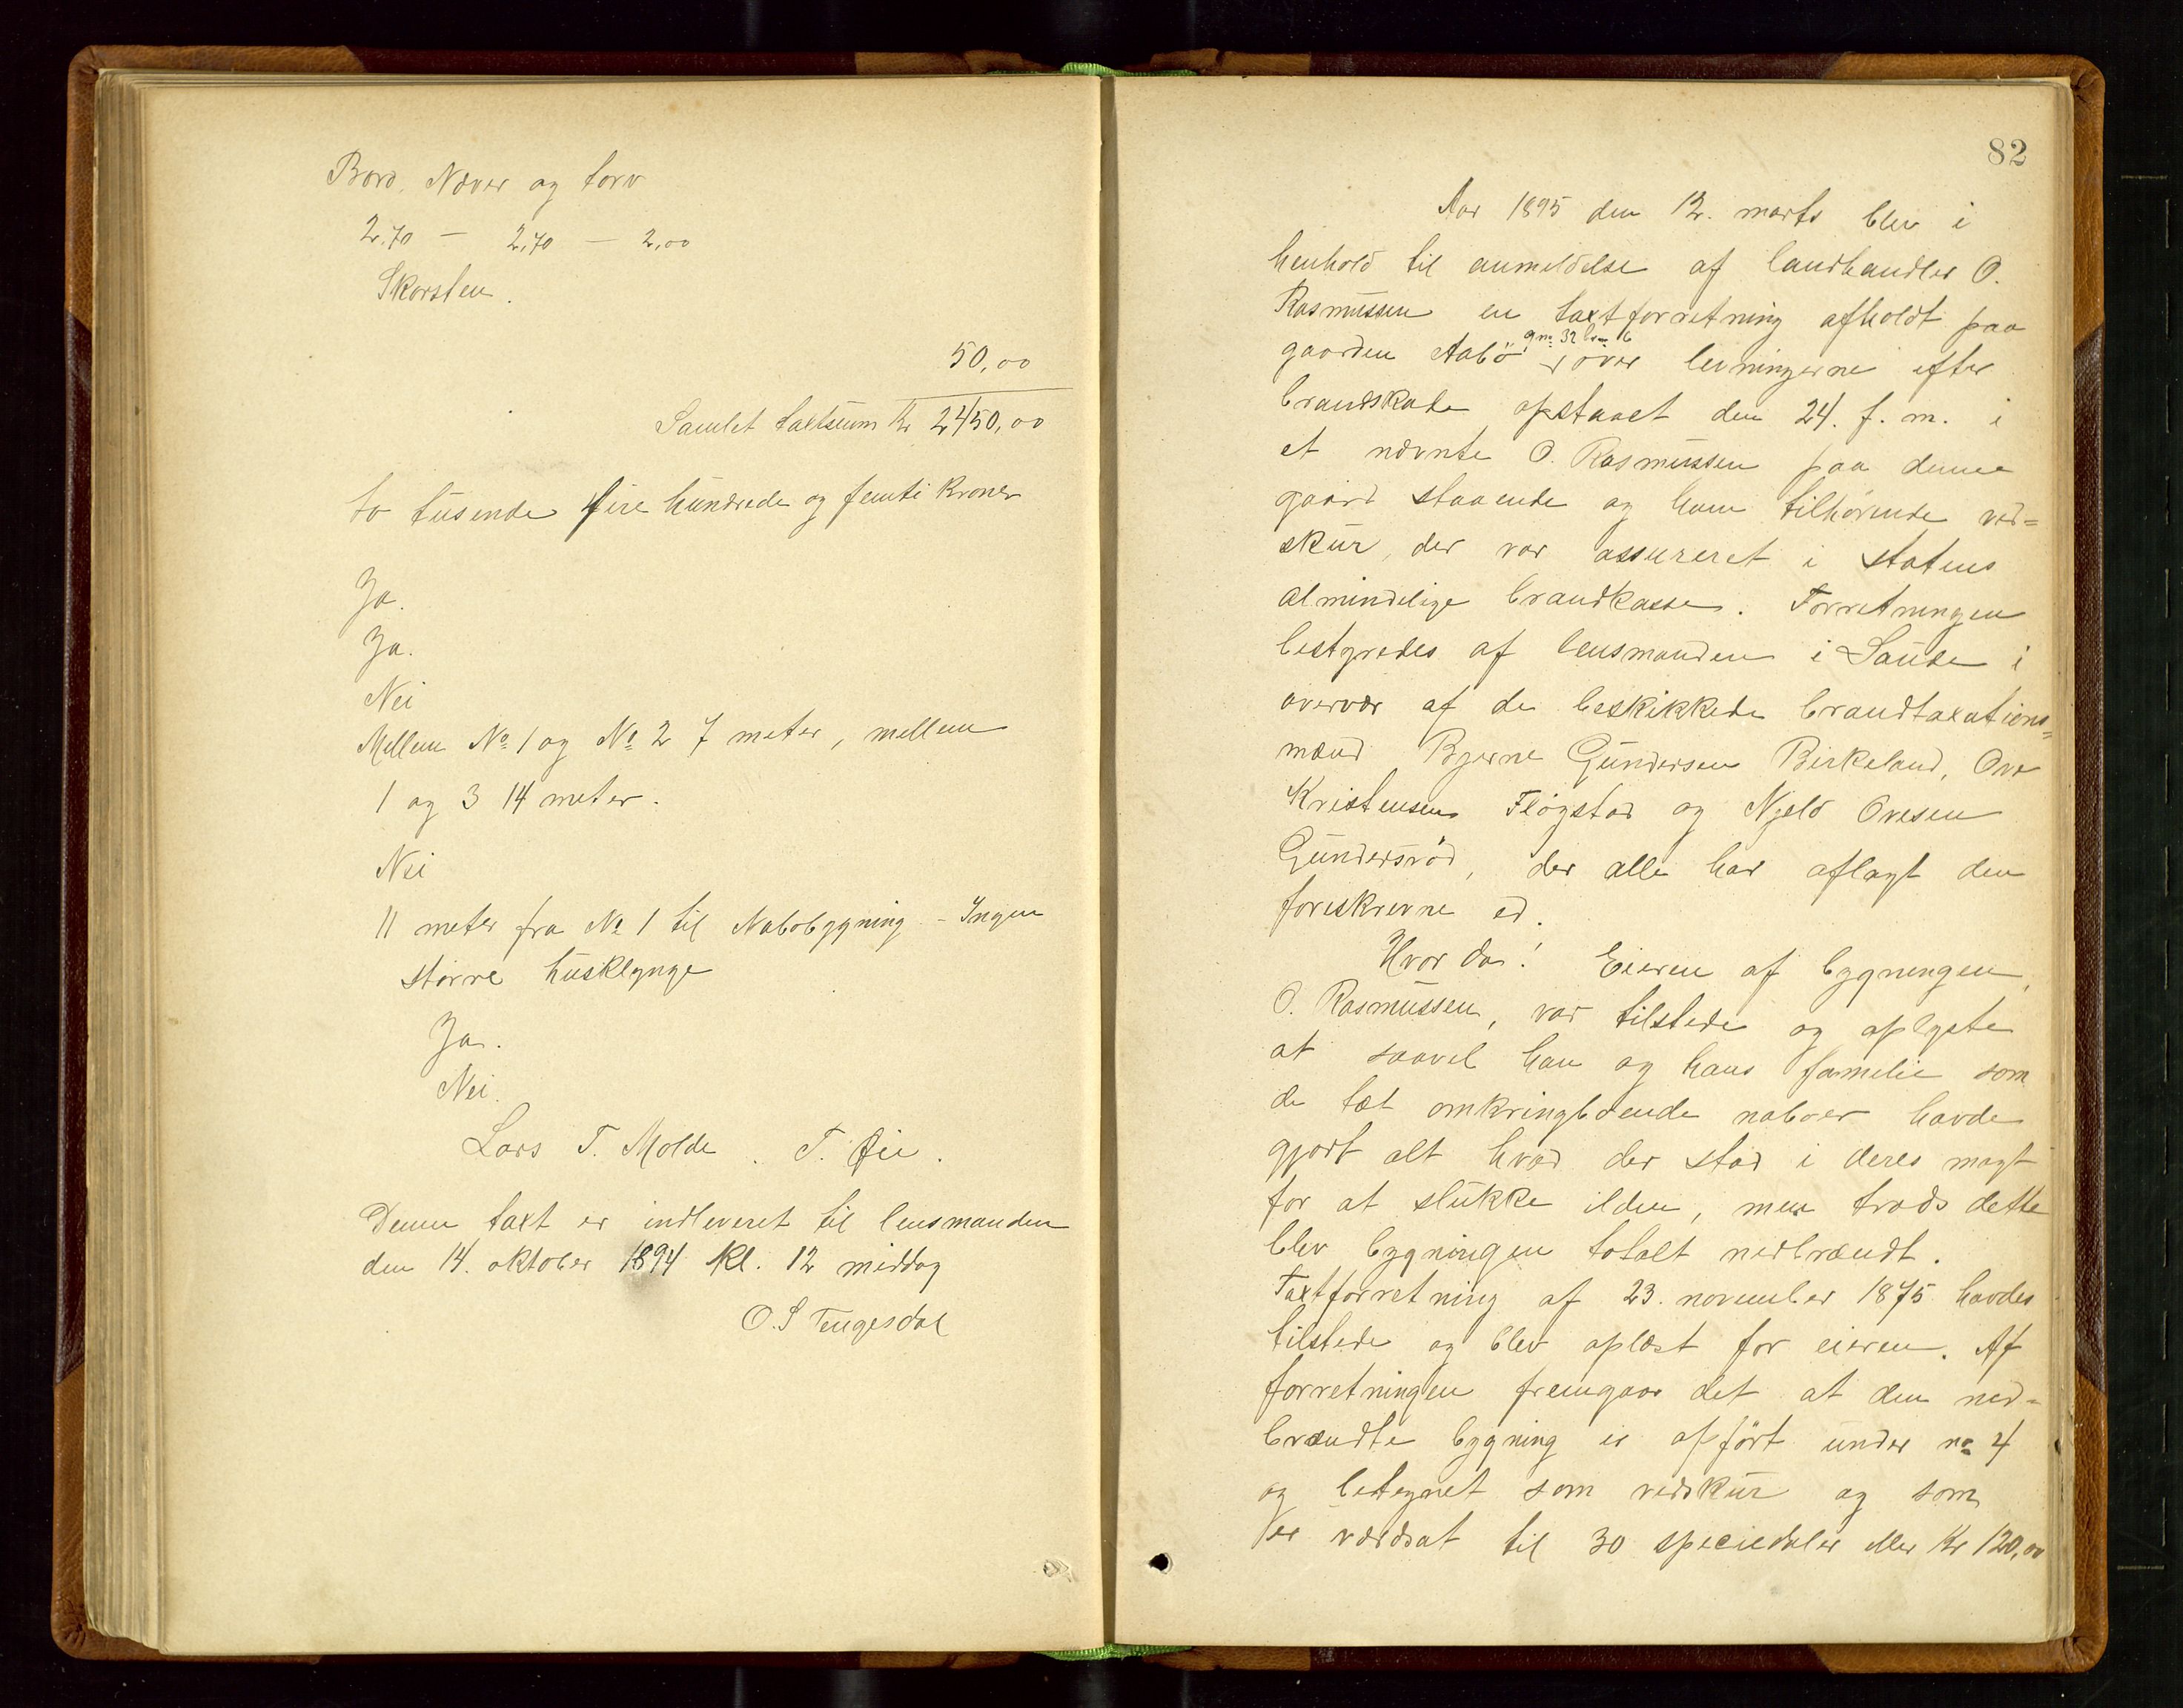 Bord, Næver og torv
2,70 — 2,70 — 2,00
Skorsten.
50,00
Samlet taxtsum Kr 2450,00
to tusende fire hundrede og femti Kroner
Ja.
Ja.
Nei
Mellem No 1 og No 2 7 meter, mellem
1 og 3 14 meter.
Nei
11 meter fra No 1 til Nabobygning - Ingen
större husklynge
Ja.
Nei.
Lars T. Molde. T. Øie.
Denne taxt er indleveret til lensmanden
den 14. oktober 1894 Kl. 12 middag
O. S Tengesdal
82
Aar 1895 den 12. marts blev i
henhold til anmeldelse af landhandler O.
Rasmussen en taxtforretning afholdt paa
gno 32 bno 6
gaarden Aabö, over levningerne efter
brandskade opstaaet den 24. f. m. i
et nævnte O. Rasmussen paa denne
gaard staaende og ham tilhörende ved=
skur, der var assureret i statens
almindelige brandkasse. Forretningen
bestyredes af lensmanden i Saude i
overvær af de beskikkede brandtaxations=
mænd Bjerne Gundersen Birkeland, Ove
Kristensen Flögstad og Njeld Ovesen
Gundersröd, der alle har aflagt den
foreskrevne ed.
Hvor da! Eieren af bygningen,
O. Rasmussen, var tilstede og oplyste
at saavel han og hans familie som
de tæt omkringboende naboer havde
gjort alt hvad der stod i deres magt
for at slukke ilden, men trods dette
blev bygningen totalt nedbrændt.
Taxtforretning af 23. november 1875 havdes
tilstede og blev oplæst for eieren. Af
forretningen fremgaar det at den ned=
brændte bygning er opfört under no 4
og betegnet som vedskur og som
er værdsat til 30 speciedaler eller Kr 120,00